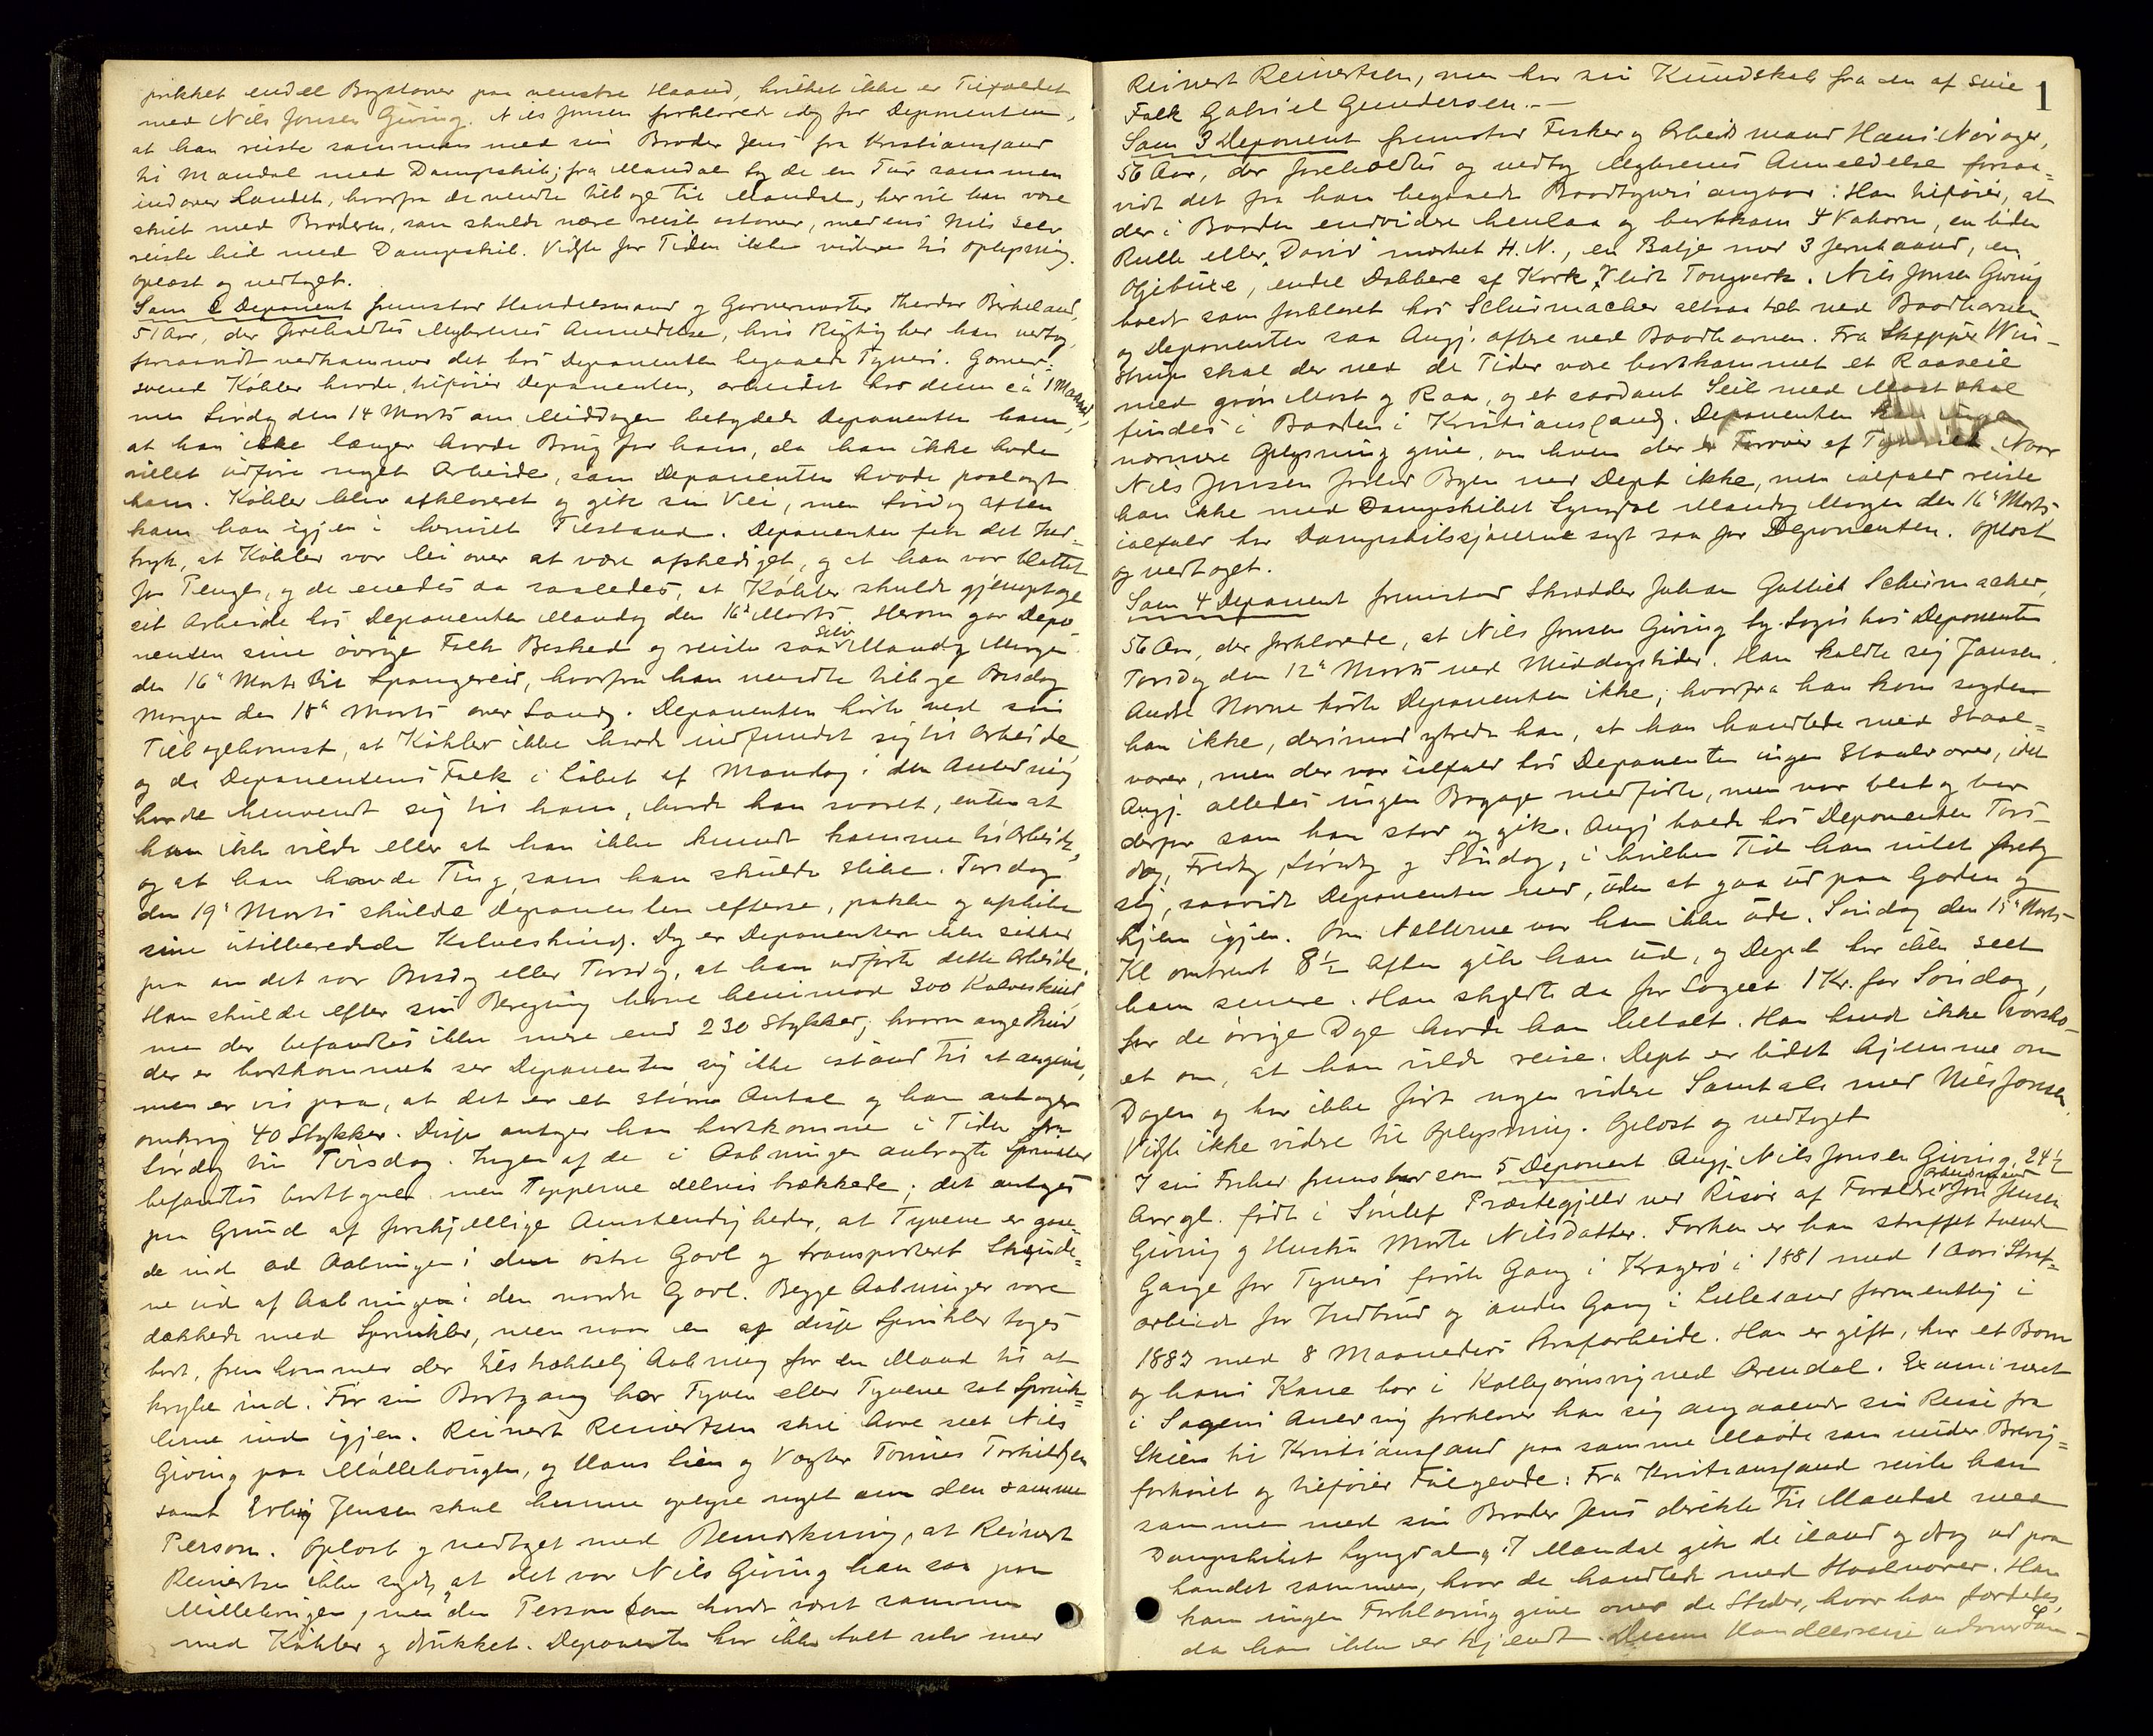 prikket endel Bogstaver paa venstre Haand, hvilket ikke er Tilfældet
med Nils Jonsen Giving. Nils Jonsen forklarede idag for Deponenten,
at han reiste sammen med sin Broder Jens fra Kristianssand
til Mandal med Dampskib; fra Mandal tog de en Tur sammen
ind over Landet, hvorfra de vendte tilbage til Mandal, her vil han være
skilt med Broderen, som skulde være reist østover, medens Nils selv
reiste hid med Dampskib. Vidste for Tiden ikke videre til Oplysning.
Oplæst og vedtaget.
Som 2 Deponent fremstod Handelsmand og Garvermester Theodor Birkeland,
51 Aar, der foreholdtes Myhrenes Anmeldelse, hvis Rigtighed han vedtog,
forsaavidt vedkommer det hos Deponenten begaaede Tyveri. Garver=
svend Köhler havde, tilföier Deponenten, arbeidet hos denne ca 1 Maaned,
men Lørdag den 14 Marts om Middagen betydede Deponenten ham,
at han ikke længer havde Brug for ham, da han ikke havde
villet udføre noget Arbeide, som Deponenten havde paalagt
ham. Köhler blev afklareret og gik sin Vei, men Søndag Aften
kom han igjen i beruset Tilstand. Deponenten fik det Ind-
tryk, at Köhler var lei over at være afskediget, og at han var blottet
for Penge, og de enedes da saaledes, at Köhler skulde gjenoptage
sit Arbeide hos Deponenten Mandag den 16de Marts. Herom gav Depo-
nenten sine øvrige Folk Besked og reiste saa selv Mandag Morgen
den 16de Marts til Spangereid, hvorfra han vendte tilbage Onsdag
Morgen den 18de Marts over Land. Deponenten hørte ved sin
Tilbagekomst, at Köhler ikke havde indfundet sig til Arbeide,
og da Deponentens Folk i Løbet af Mandag i den Anledning
havde henvendt sig til ham, havde han svaret, enten at
han ikke vilde eller at han ikke kunde komme til Arbeide,
og at han havde Ting, som han skulde slibe. Torsdag
den 19de Marts skulde Deponenten efterse, pakke og afskibe
sine utilberedede Kalveskind. Dog er Deponenten ikke sikker
paa om det var Onsdag eller Torsdag, at han udførte dette Arbeide.
Han skulde efter sin Beregning have henimod 300 Kalveskind,
men der befandtes ikke mere end 230 Stykker; hvor mange Skind
der er bortkommet ser Deponenten sig ikke istand til at angive,
men er vis paa, at det er et større Antal og han antager
omkring 40 Stykker. Disse antager han bortkomne i Tiden fra
Lørdag til Tirsdag. Ingen af de i Aabningen anbragte Sprinkler
befandtes borttagne men Tapperne delvis brækkede; det antages
paa Grund af forskjellige Omstændigheder, at Tyvene er gaae-
de ind ad Aabningen i den østre Gavl og transporteret Skinde-
ne ud af Aabningen i den nordre Gavl. Begge Aabninger vare
dækkede med Sprinkler, men naar en af disse Sprinkler tages
bort, fremkommer der tilstrækkelig Aabning for en Mand til at
krybe ind. Før sin Bortgang har Tyven eller Tyvene sat Sprink=
lerne ind igjen. Reinert Reinertsen skal have seet Nils
Giving paa Møllehougen, og Hans Lien og Vægter Tønnes Torkildsen
samt Erling Jensen skal kunne oplyse noget om den samme
Person. Oplæst og vedtaget med Bemærkning, at Reinert
Reinertsen ikke sagde, at det var Nils Giving han saa paa
Møllehougen, men den Person som havde været sammen
med Köhler og drukket. Deponenten har ikke talt selv med
1
Reinert Reinertsen, men har sin Kundskab fra en af sine
Folk Gabriel Gundersen. —
Som 3 Deponent fremstod Fisker og Arbeidsmand Hans Nöroger,
56 Aar, der foreholdtes og vedtog Myhrenes Anmeldelse forsaa=
vidt det fra ham begaaede Baadtyveri angaar. Han tilføier, at
der i Baaden endvidere henlaa og bortkom 4 Vaborn, en liden
Rulle eller "David" mærket H. N., en Balje med 3 Jernbaand, en
Oljebuxe, endel Dobbere af Kork & lidt Tougverk. Nils Jonsen Giving
boede som forklaret hos Schirmacher altsaa tæt ved Baadhavnen
og Deponenten saa Angj. oftere ved Baadhavnen. Fra Skipper Win-
strup skal der ved de Tider være bortkommet et Raaseil
med grøn Mast og Raa, og et saadant Seil med Mast skal
findes i Baaden i Kristianssand. Deponenten kan ingen
nærmere Oplysning give, om hvem der er Tyven. Naar
Nils Jonsen forlod Byen ved Dept ikke, men ialfald reiste
han ikke med Dampskibet Lyngdal Mandag Morgen den 16de Marts
ialfald har Dampskibsexpeditørerne sagt saa for Deponenten. Oplæst
og vedtaget.
Som 4 Deponent fremstod Skrædder Johan Gottlieb Schirmacher,
56 Aar, der forklarede, at Nils Jonsen Giving tog Logis hos Deponenten
Torsdag den 12de Marts ved Middagstider. Han kaldte sig Jansen.
Andre Navne hørte Deponenten ikke; hvorfra han kom sagde
han ikke, derimod ytrede han, at han handlede med Staal=
varer, men der var ialfald hos Deponenten ingen Staalvarer, idet
Angj. alledes ingen Bagage medførte, men var blot og bar
derfor som han stod og gik. Angj boede hos Deponenten Tors-
dag, Fredag, Lørdag og Søndag, i hvilken Tid han intet foretog
sig, saavidt Deponenten ved, uden at gaa ud paa Gaden og
hjem igjen. Om Nætterne var han ikke ude. Søndag den 15de Marts
Kl omtrent 8½ Aften gik han ud, og Dept har ikke seet
ham senere. Han skyldte da for Logiet 1 Kr. for Søndag,
for de øvrige Dage havde han betalt. Han havde ikke varsko-
et om, at han vilde reise. Dept er lidet hjemme om
Dagen og har ikke ført nogen videre Samtale med Nils Jonsen.
Vidste ikke videre til Oplysning. Oplæst og vedtaget
I sin Frihed fremstod som 5 Deponent Angj. Nils Jonsen Giving 24½
Aar gl. født i Søndeled Præstegjeld ved Risør af Forældre Strandmand Jon Jensen
Giving og Hustru Marte Nilsdatter. Forhen er han straffet tvende
Gange for Tyveri første Gang i Kragerø i 1881 med 1 Aars Straf=
arbeide for Indbrud og anden Gang i Lillesand formentlig i
1883 med 8 Maaneders Strafarbeide. Han er gift, har et Barn
og hans Kone bor i Kolbjørnsvig ved Arendal. Examineret
i Sagens Anledning forklarer han sig angaaende sin Reise fra
Skien til Kristianssand paa samme Maade som under Brevig=
forhøret og tilføier Følgende: Fra Kristianssand reiste han
sammen med sin Broder Jens direkte til Mandal med
Dampskibet Lyngdal. I Mandal gik de iland og drog ud paa
Landet sammen, hvor de handlede med Staalvarer. Han
kan ingen Forklaring give over de Steder, hvor han færdedes,
da han ikke er kjendt. Denne Handelsreise udover Lan-